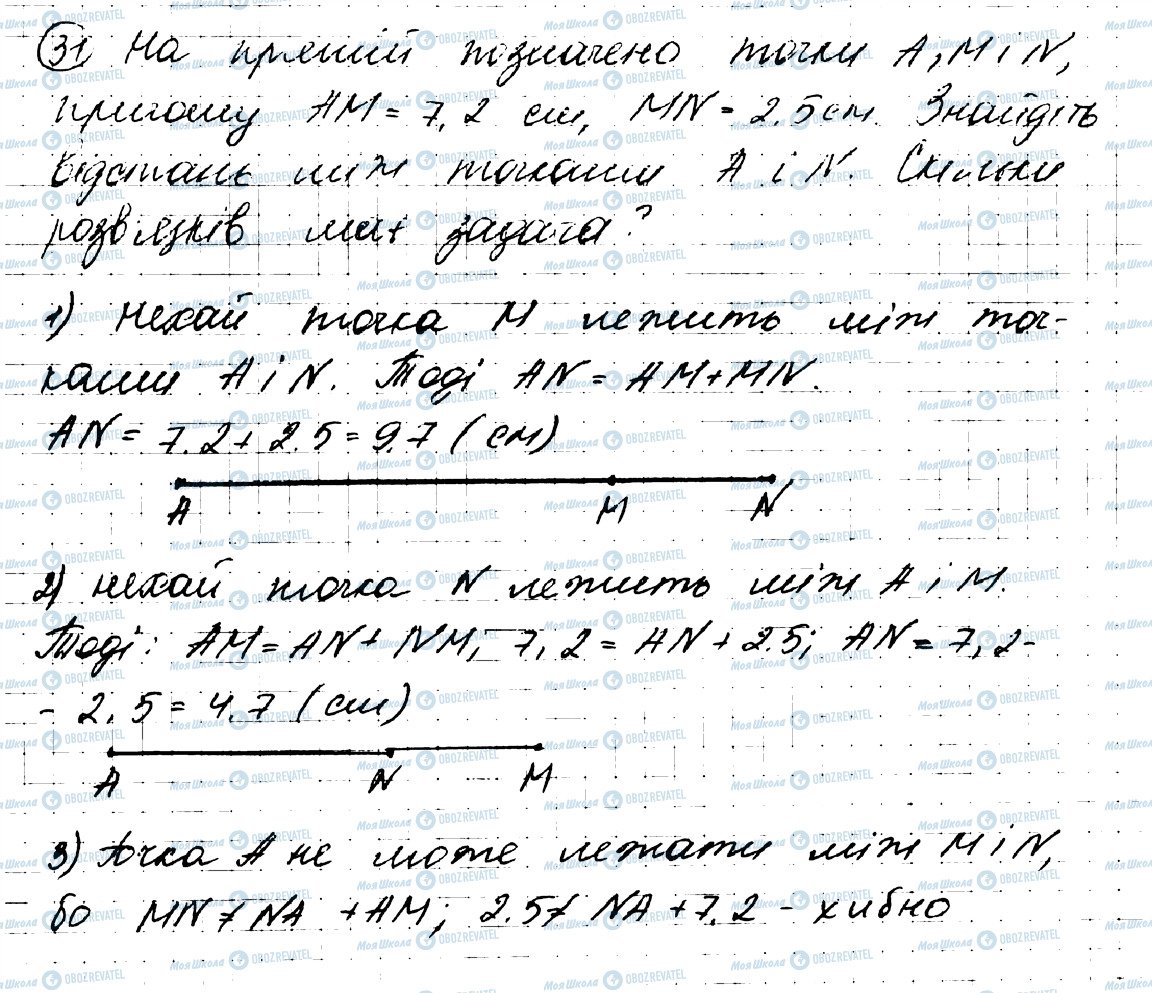 31 На прямій позначено точки A, M і N,
причому AM = 7,2 см, MN = 2.5 см. Знайдіть
відстань між точками A і N. Скільки
розв'язків має задача?
1) Нехай точка M лежить між точ-
ками A і N. Тоді AN = AM + MN.
AN = 7.2 + 2.5 = 9.7 (см)
A M N
2) Нехай точка N лежить між A і M.
Тоді: AM = AN + NM; 7,2 = AN + 2.5; AN = 7,2 -
- 2,5 = 4.7 (см)
A N M
3) Точка A не може лежати між M і N,
бо MN ≠ NA + AM; 2.5 ≠ NA + 7.2 - хибно